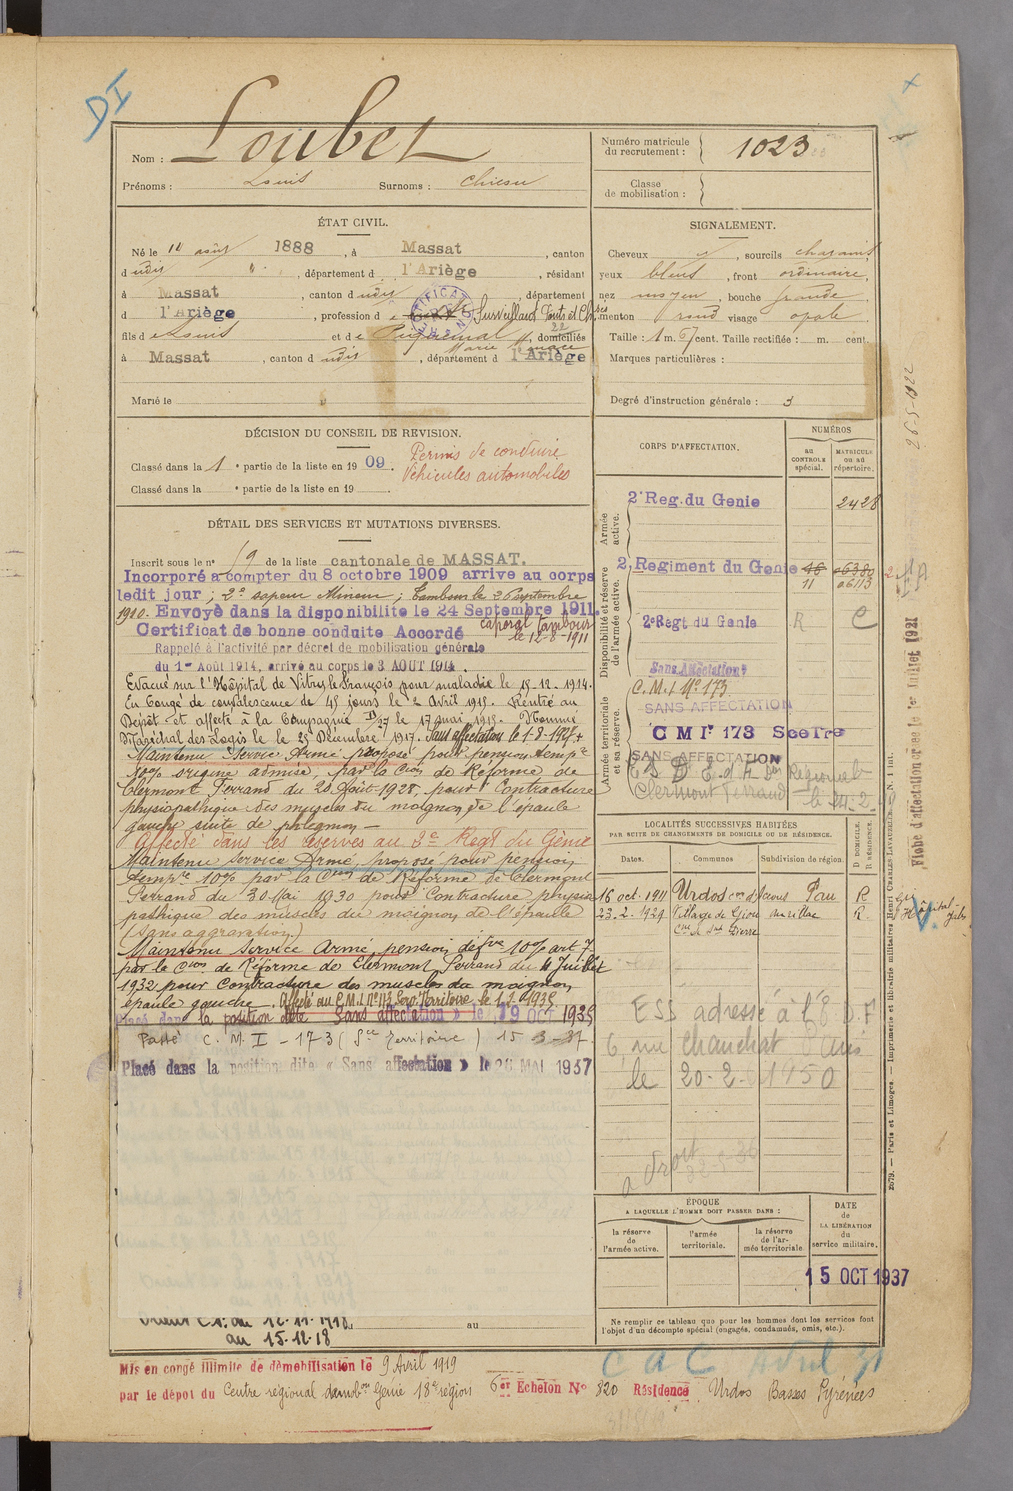 DI
Nom : Loubet
Prénoms : Louis Surnoms :
Numéro matricule du recrutement : 1023
Classe de mobilisation :
ÉTAT CIVIL.
Né le 11 août 1888, à Massat, canton
dudit, département d l'Ariège, résidant
à Massat, canton dudit, département
d l'Ariège, profession de Surveillant Ponts et Ch.
fils de Louis et de domiciliés
à Massat, canton dudit, département d l'Ariège
Marié le
SIGNALEMENT.
Cheveux, sourcils chatains,
yeux bleus, front ordinaire,
nez moyen, bouche grande
menton rond visage ovale
Taille : 1 m. 67 cent. Taille rectifiée : m. cent.
Marques particulières :
Degré d'instruction générale : 3
26-5-1922
DÉCISION DU CONSEIL DE REVISION.
Classé dans la 1e partie de la liste en 1909.
Classé dans la e partie de la liste en 19
Permis de conduire
Véhicules automobiles
DÉTAIL DES SERVICES ET MUTATIONS DIVERSES.
Inscrit sous le n° 59 de la liste cantonale de MASSAT.
Incorporé à compter du 8 octobre 1909 arrive au corps
ledit jour ; 2e sapeur Mineur ; Tambour le 26 septembre
1910. Envoyé dans la disponibilité le 24 Septembre 1911.
caporal tambour
le 12-8-1911
Certificat de bonne conduite Accordé
Rappelé à l'activité par décret de mobilisation générale
du 1er Août 1914, arrivé au corps le 3 AOUT 1914.
Evacué sur l'Hôpital de Vitry le François pour maladie le 15-12-1914.
En Congé de convalescence de 45 jours le 2 Avril 1915. Rentré au
Dépôt et affecté à la Compagnie 27 le 17 mai 1915. Nommé
Maréchal des Logis le le 25 Décembre 1917. Sans affectation le 1-8-1927
Maintenu Service Armé proposé pour pension temp.e
10% origine admise, par la Con de Réforme de
Clermont Ferrand du 20 Août 1928, pour Contracture
physiopathique des muscles du moignon de l'épaule
gauche suite de phlegmon —
Affecté dans les réserves au 2e Regt du Génie
Maintenu Service Armé, proposé pour pension
temp.re 10% par la Con de Réforme de Clermont
Ferrand du 30 Mai 1930 pour Contracture physio
pathique des muscles du moignon de l'épaule
(sans aggravation)
Maintenu Service Armé, pension défve 10% art 7
par la Con de Réforme de Clermont Ferrand du 4 Juillet
1932 pour Contracture des muscles du moignon
épaule gauche. Affecté au C.M.I. N° 173 Serv. Territoire, le 1.2.1935
Placé dans la position dite « Sans affectation » le 19 OCT 1935
Passé C.M.I - 173 (Sce territoire) 15-3-37
Placé dans la position dite « Sans affectation » le 26 MAI 1937
du 12.11.1918,
au
au 15.12.18
Mis en congé illimité de démobilisation le 9 Avril 1919
par le dépôt du Centre régional démobon Génie 18e région 6er Echelon N° 820 Résidence Urdos Basses Pyrénées
CORPS D'AFFECTATION.
NUMÉROS
au CONTROLE spécial.
MATRICULE ou au répertoire.
Armée active.
2e Reg. du Genie 2428
Disponibilité et réserve de l'armée active.
2e Regiment du Genie
11 06113
2e Regt du Genie R C
Armée territoriale et sa réserve.
Sans Affectation
C.M.I N° 173
SANS AFFECTATION
CMI 173 Sce Tre
SANS AFFECTATION
Clermont Ferrand
LOCALITÉS SUCCESSIVES HABITÉES
PAR SUITE DE CHANGEMENTS DE DOMICILE OU DE RÉSIDENCE.
Dates. Communes Subdivision de région. D DOMICILE. R RÉSIDENCE.
16 oct. 1911 Urdos Pau R
23.2.1921 Village de Giou Aurillac R
ESS adressé à l'E D F
6, rue Chauchat Paris
le 20-2-1950
ÉPOQUE
A LAQUELLE L'HOMME DOIT PASSER DANS :
la réserve de l'armée active.
l'armée territoriale.
la réserve de l'armée territoriale
DATE de LA LIBÉRATION du service militaire.
15 OCT 1937
Ne remplir ce tableau que pour les hommes dont les services font
l'objet d'un décompte spécial (engagés, condamnés, omis, etc.).
C a C Avril 31
Fiche d'affectation créée le 1er Juillet 1921
2679. — Paris et Limoges. — Imprimerie et librairie militaires Henri CHARLES-LAVAUZELLE. N. 1 int.